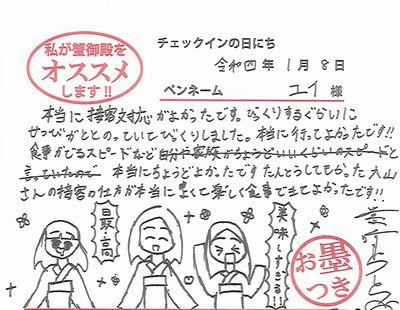 私が蟹御殿を
オススメ
します!!
チェックインの日にち
令和四年 1月 8日
ペンネーム ユイ 様
本当に接客対応がよかったです。びっくりするぐらいに
せつびがととのっていてびっくりしました。本当に行ってよかったです!!
食事がでるスピードなど自分や家族がちょうどいいくらいのスピードと
言っていたので 本当にちょうどよかったです たんとうしてもらった大山
さんの接客の仕方が本当に良くて楽しく食事できてよかったです!!
最高
美味しすぎる!!
お墨
つき